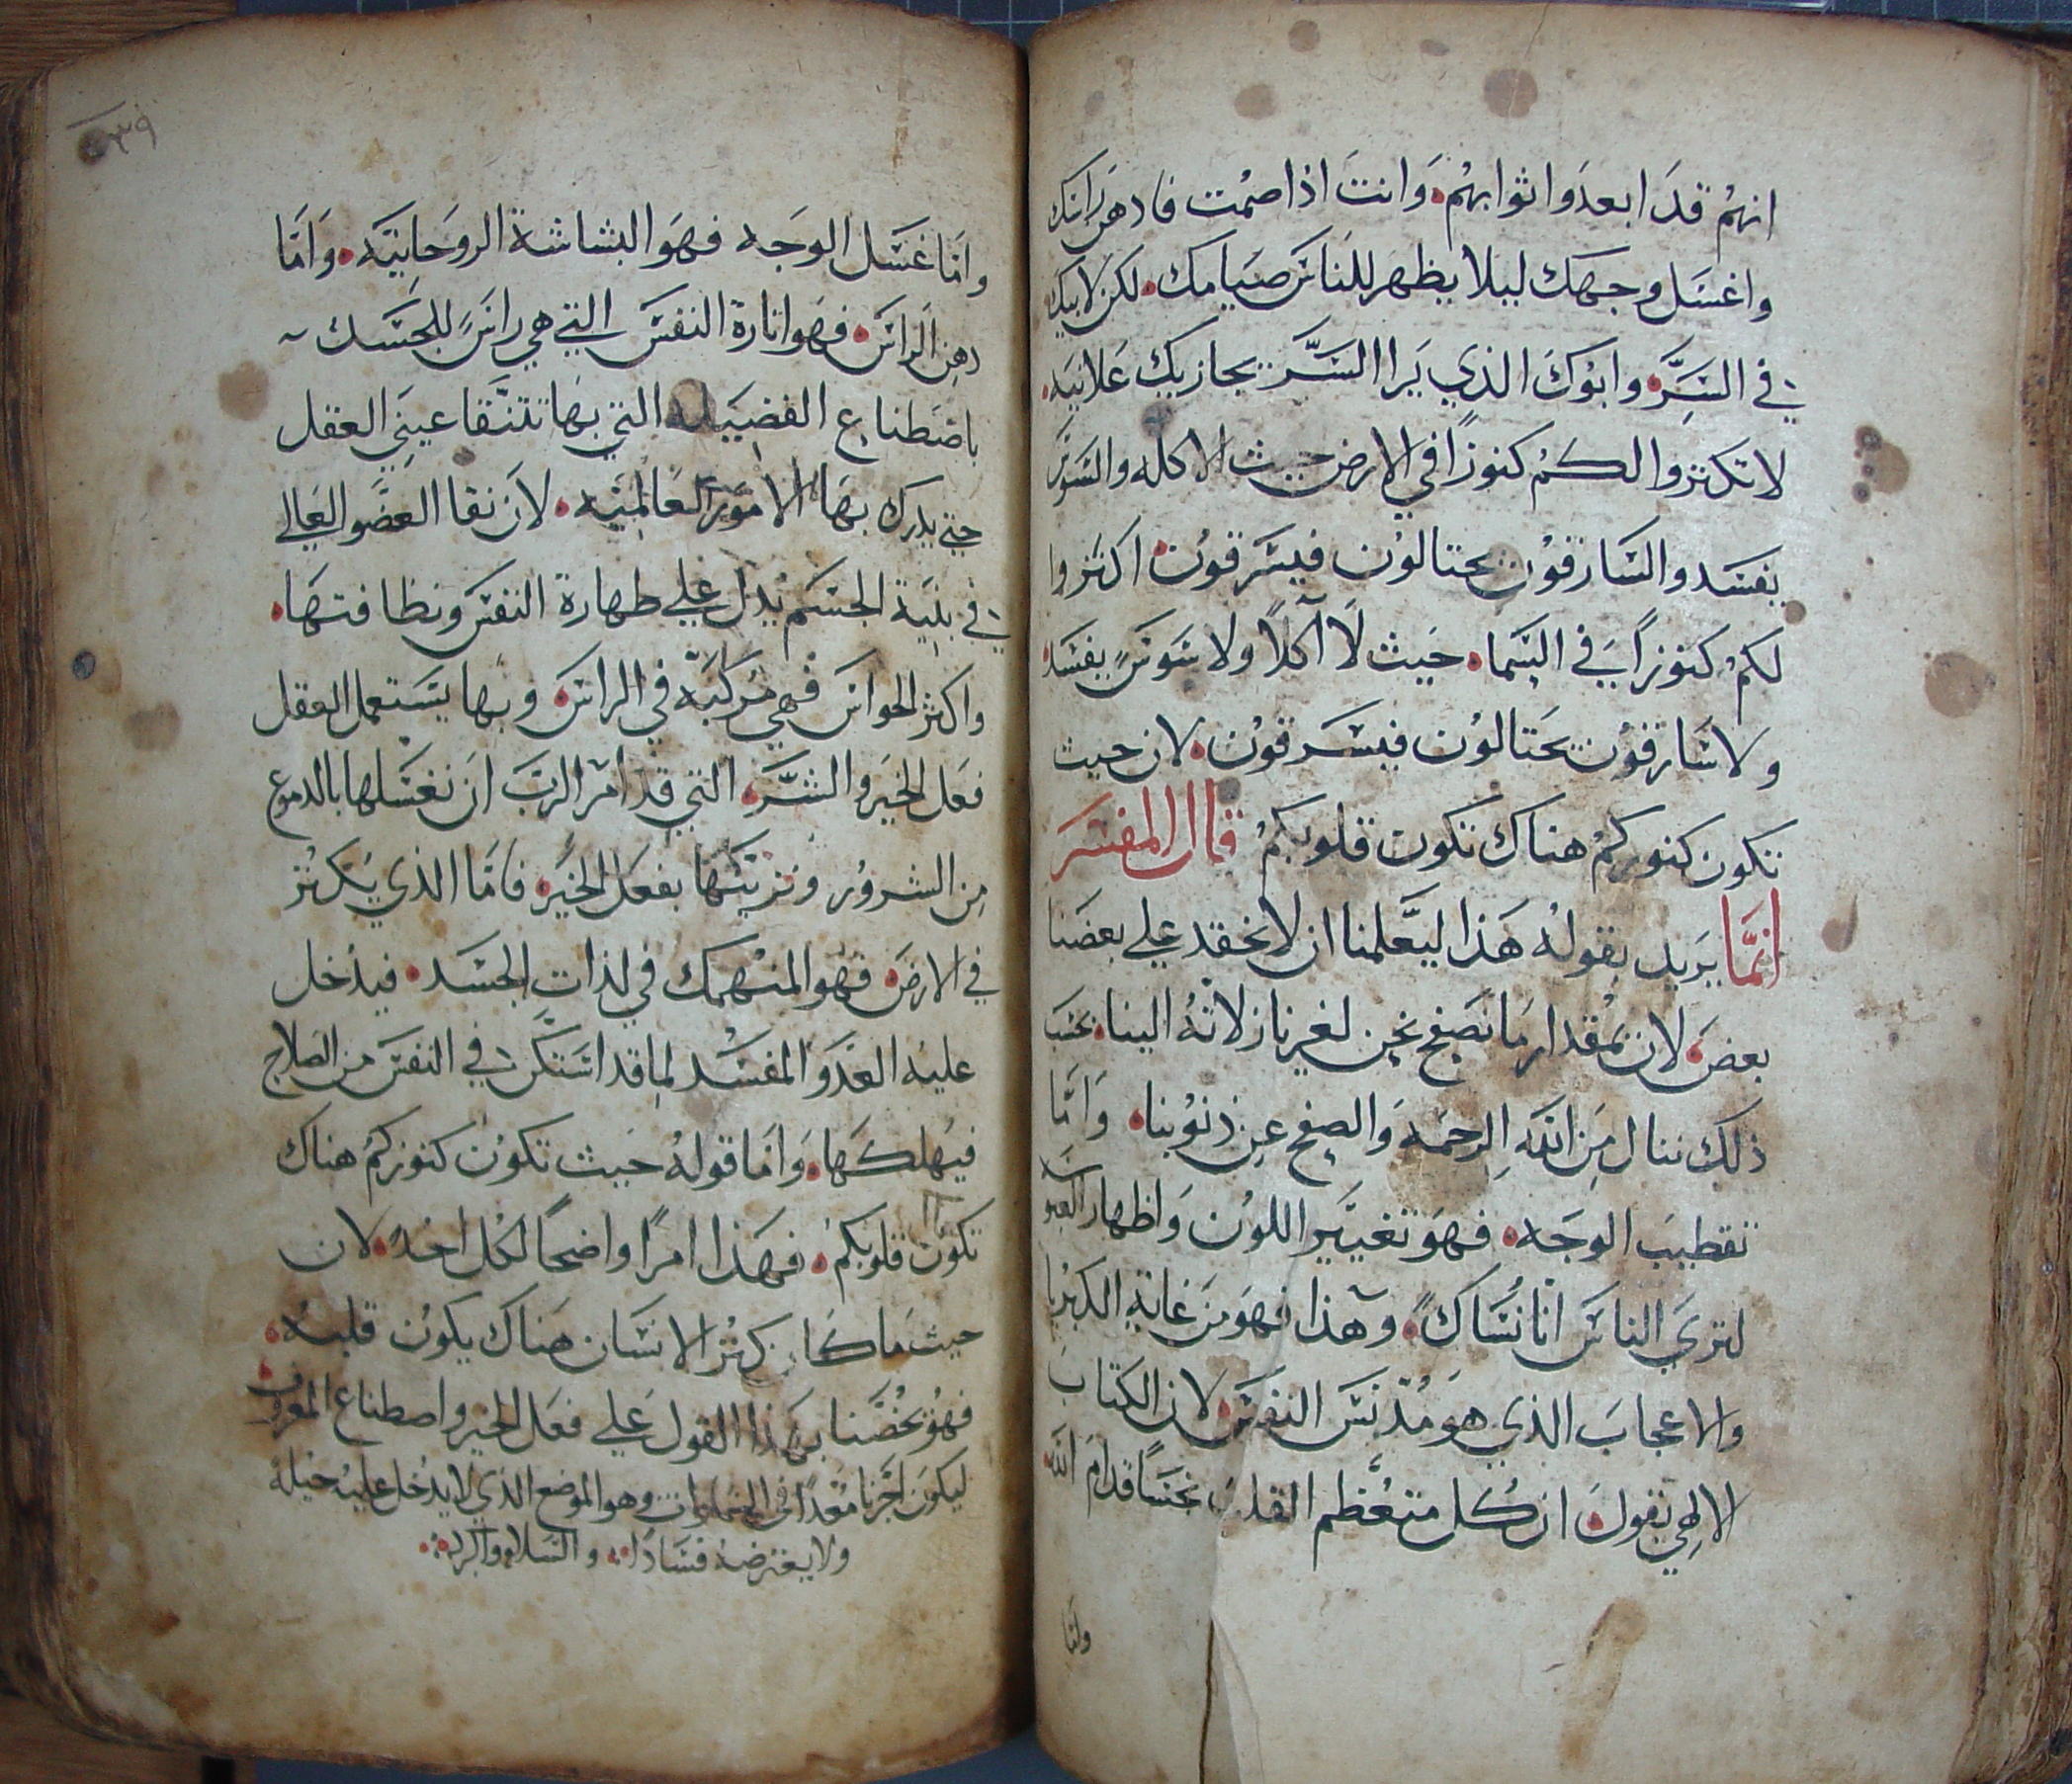 انهم قد ابعدوا ثوابهم. وانت اذا صمت فادهن راسك
واغسل وجهك ليلا يظهر للناس صيامك. لكن لابيك
في السر. وابوك الذي يرا السر يجازيك علانيه.
لا تكنزوا لكم كنوزا في الارض حيث الاكله والسوس
يفسد والسارقون يحتالون فيسرقون. اكنزوا
لكم كنوزا في السما. حيث لا آكلا ولا سوس يفسد.
ولا سارقون يحتالون فيسرقون. لان حيث
تكون كنوزكم هناك تكون قلوبكم قال المفسر
انما يريد بقوله هذا ليعلمنا ان لا نحقد علي بعضنا
بعض. لان بمقدار ما نصفح نحن لغيرنا زلاته الينا. بحسب
ذلك ننال من الله الرحمه والصفح عن ذنوبنا. واما
تقطيب الوجه. فهو تغيير اللون واظهار العبوسه
لتري الناس انا نساك. وهذا فهو من غاية الكبريا
والاعجاب الذي هو مدنس النفس. لان الكتاب
الالهي يقول. ان كل متعظم القلب نجسا قدام الله.
واما
٣٩
واما غسل الوجه فهو البشاشة الروحانيه. واما
دهن الراس. فهو انارة النفس التي هي راس للجسد
باصطناع الفضيله التي بها تتنقا عيني العقل
حتي يدرك بها الامور العالميه. لان نقا العضو العالي
في بنية الجسم يدل علي طهارة النفس ونظافتها.
واكثر الحواس فهي مركبه في الراس. وبها يستعمل العقل
فعل الخير والشر. التي قد امر الرب ان نغسلها بالدموع
من الشرور ونزينها بفعل الخير. فاما الذي يكنز
في الارض. فهو المنهمك في لذات الجسد. فيدخل
عليه العدو المفسد لما قد استكن في النفس من الصلاح
فيهلكها. واما قوله حيث تكون كنوزكم هناك
تكون قلوبكم. فهذا امرا واضحا لكل احد. لان
حيث ما كان كنز الانسان هناك يكون قلبه.
فهو يحضنا بهذا القول علي فعل الخير واصطناع المعروف.
ليكون اجرنا معدا في السماوات وهو الموضع الذي لا يدخل عليه حيله
ولا يعترضه فسادا. والسلام والرب.